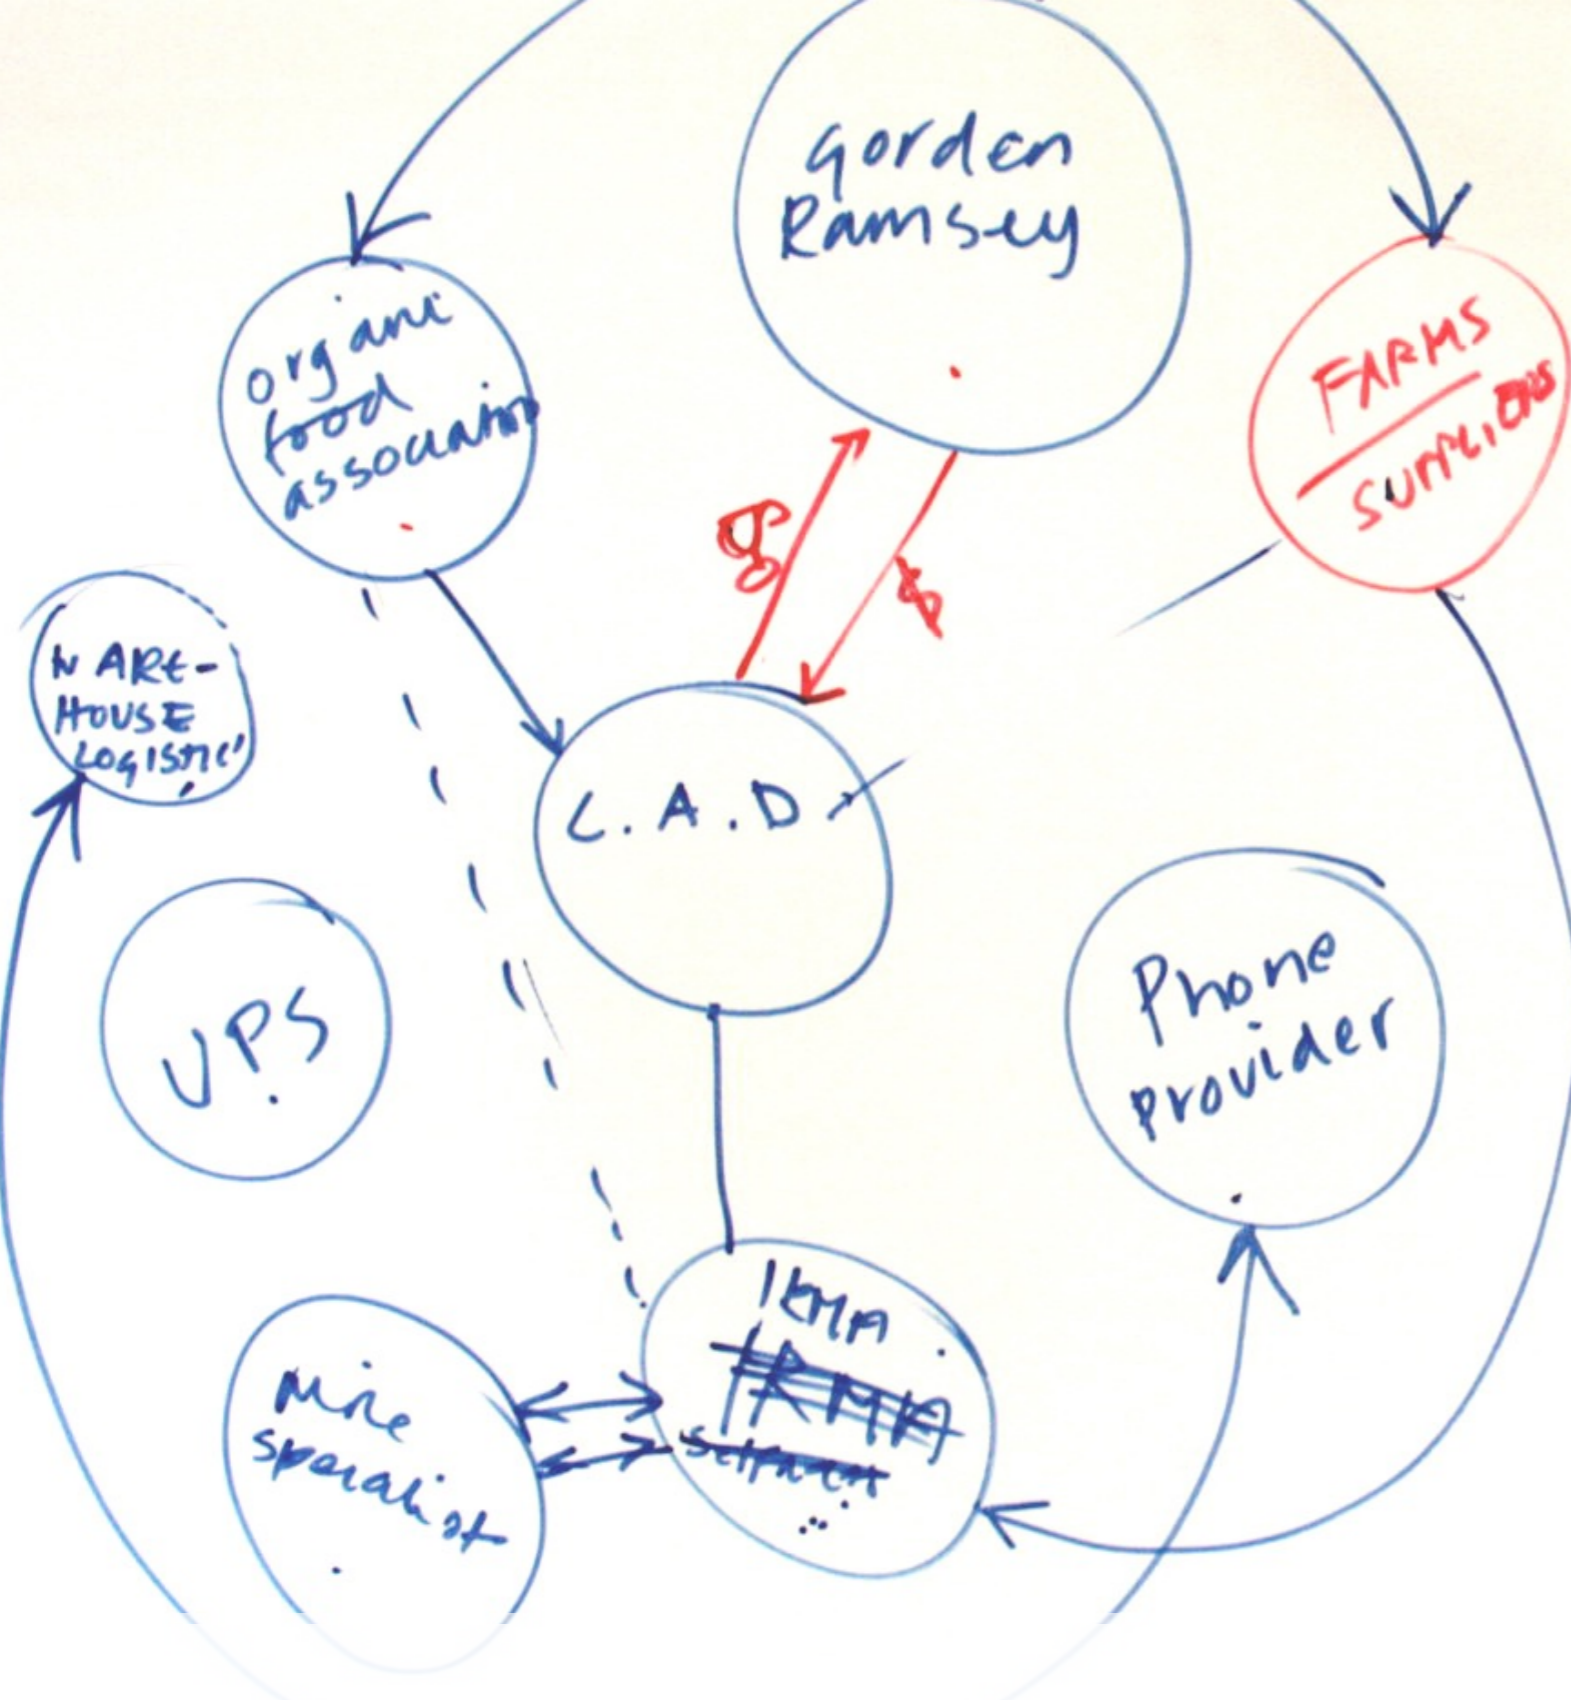 Gorden
Ramsey
organic
food
association
FARMS
SUPPLIERS
$
WARE-
HOUSE
LOGISTIC'
C.A.D.
UPS
Phone
provider
IKMA
IRMA
specialist